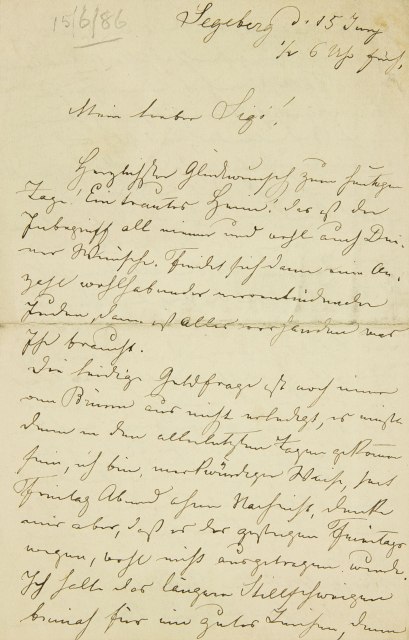 15/6/86
Segeberg d. 15 Juny
1/2 6 Uhr früh.
Mein lieber Sigi!
Herzlichsten Glückwunsch zum heutigen
Tage! Ein trautes Heim! das ist der
Inbegriff all meiner und wohl auch Dei-
ner Wünsche. Findet sich dann eine An-
zahl wohlhabender
Juden, dann ist alles vorhanden was
Ihr braucht.
Die leidige Geldfrage ist noch immer
von Brünn aus nicht erledigt, es müßte
denn in den allerletzten Tagen gekommen
sein, ich bin, merkwürdiger Weise, seit
Freitag Abend ohne Nachricht, denke
mir aber, daß es des gestrigen Feiertags
wegen, wohl nicht ausgetragen wurde.
Ich halte das längere Stillschweigen
beinah für ein gutes Zeichen, denn